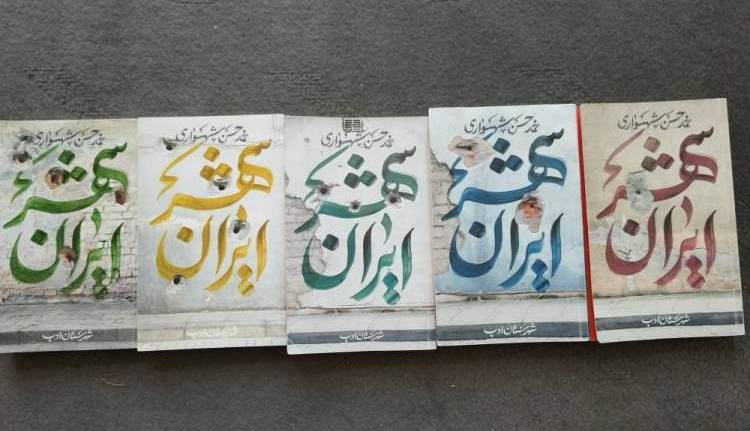 محمدحسن شهسواری
شهر
ایران
شهرستان ادب
محمدحسن شهسواری
شهر
ایران
شهرستان ادب
محمدحسن شهسواری
شهر
ایران
شهرستان ادب
محمدحسن شهسواری
شهر
ایران
شهرستان ادب
محمدحسن شهسواری
شهر
ایران
شهرستان ادب